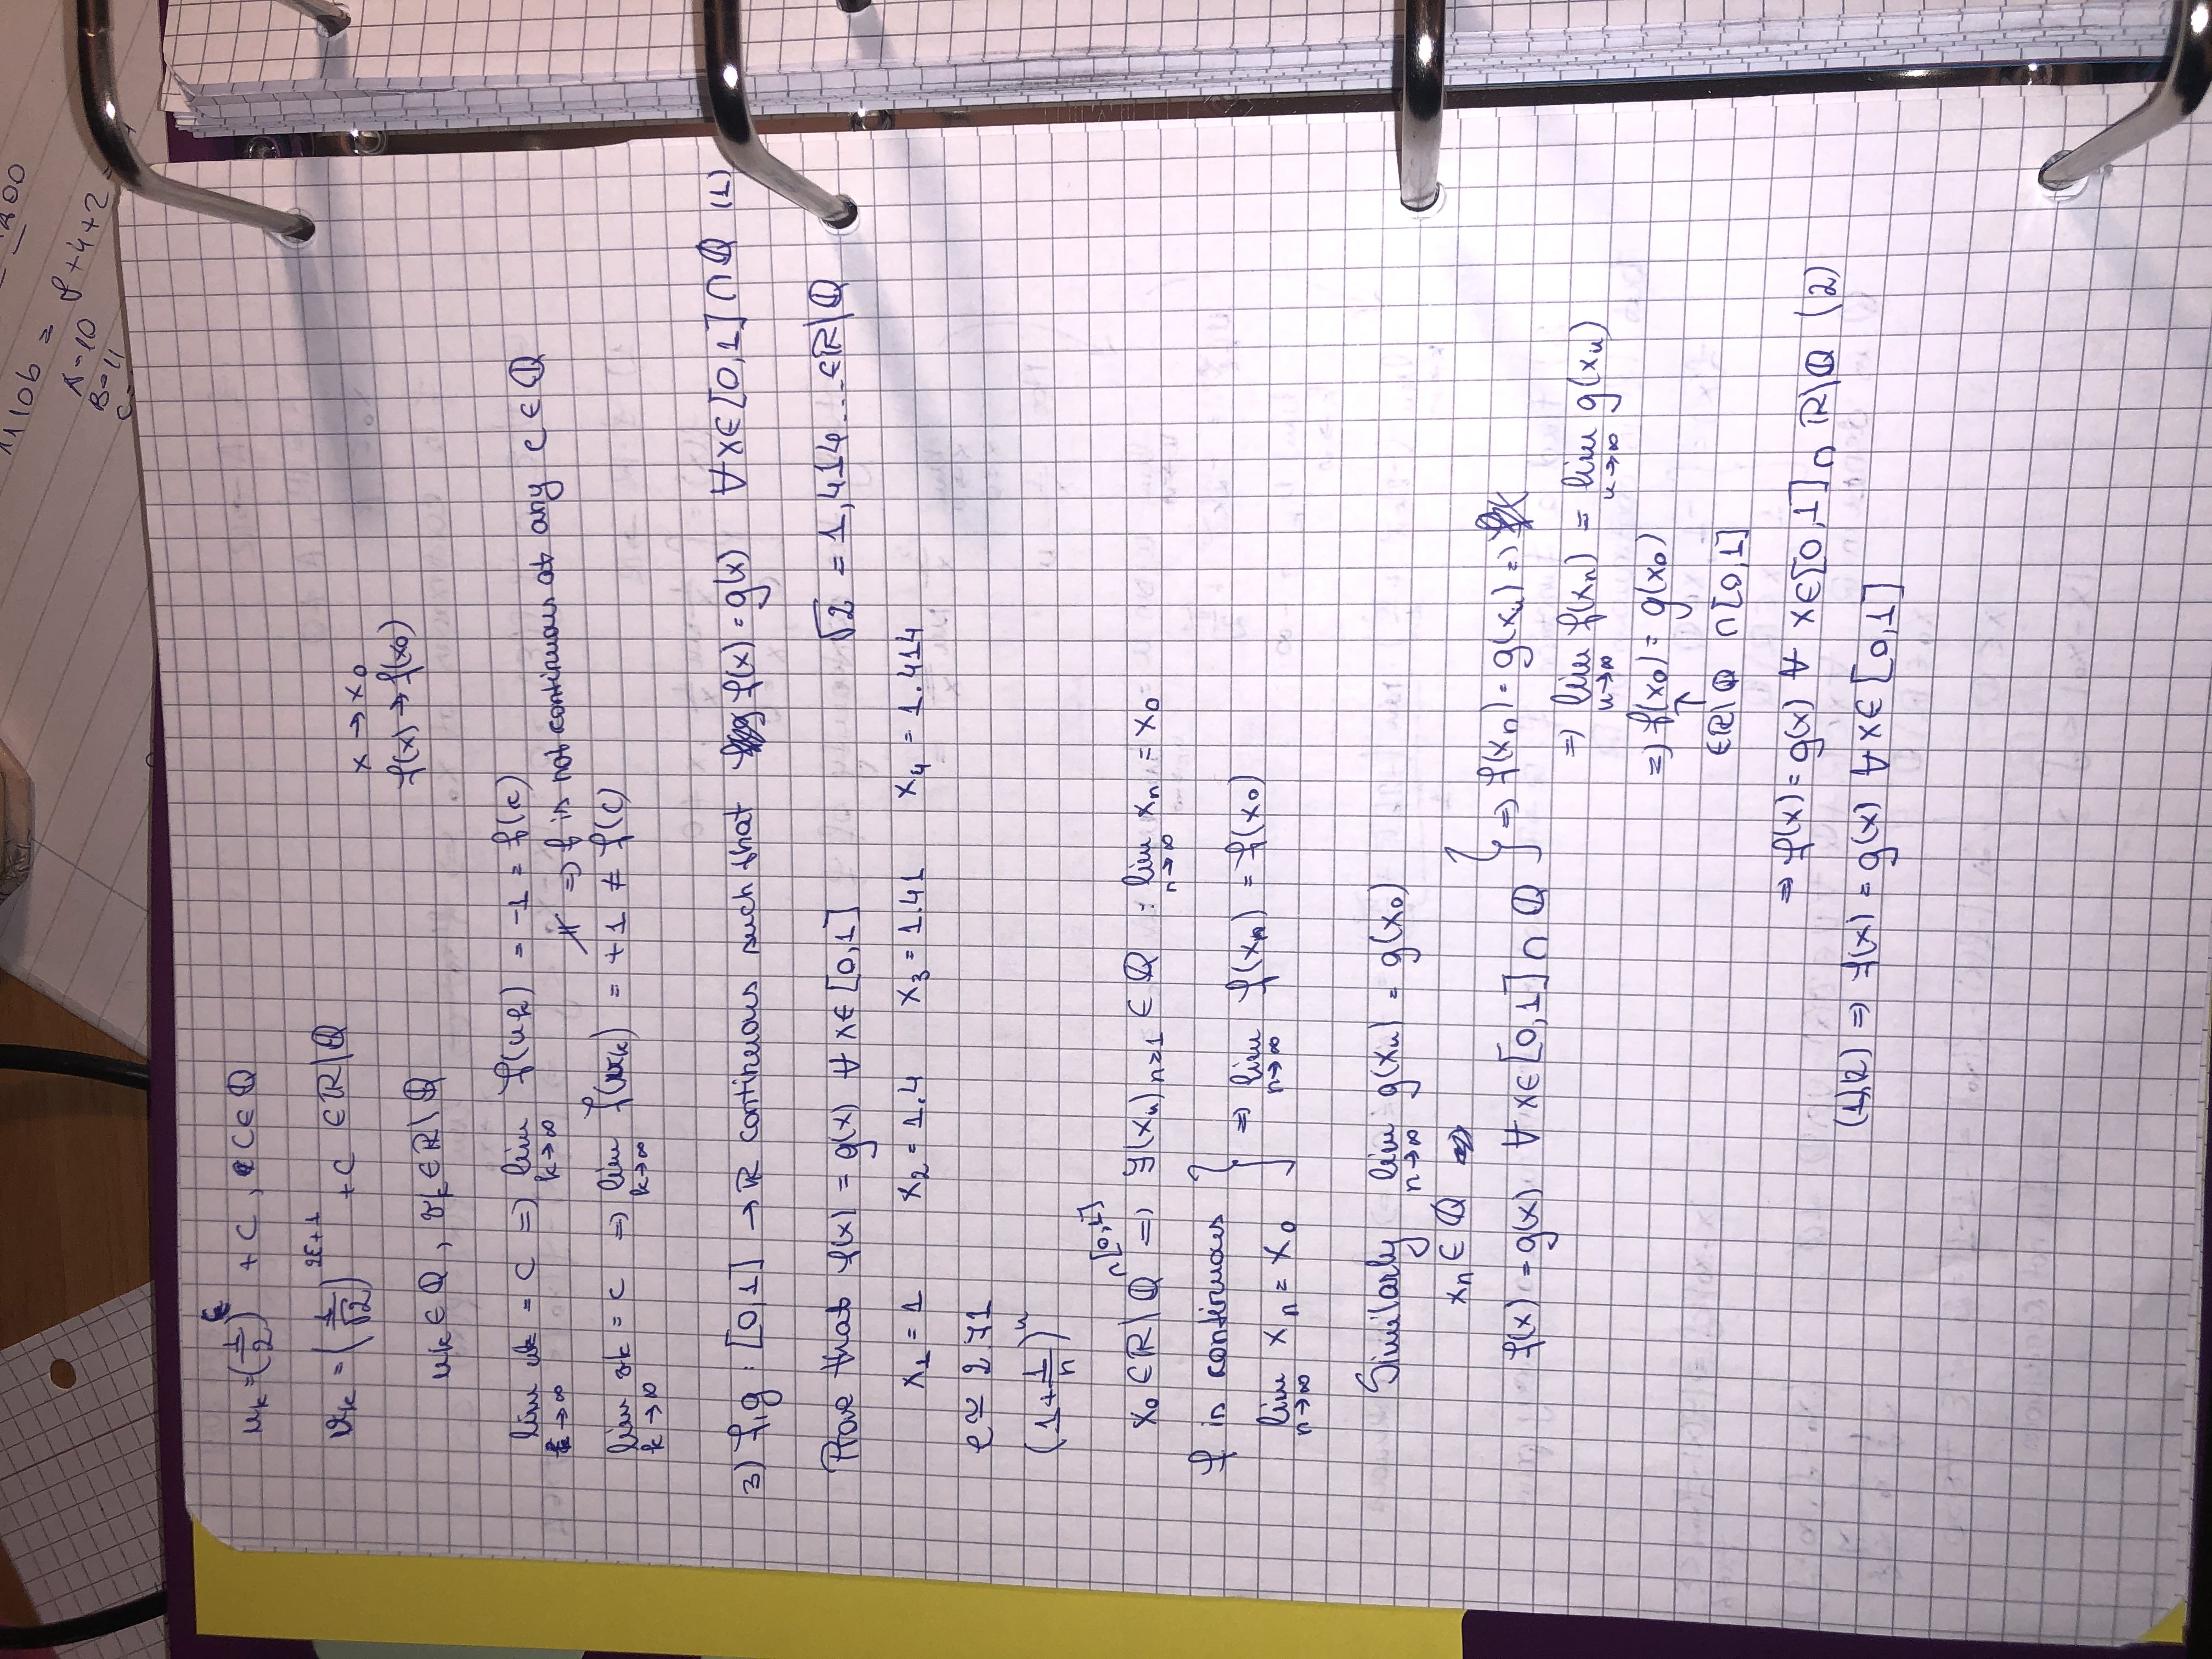 1110b = 8+4+2 =
A=10
B=11
u_k = (1/2)^k + C , C ∈ ℚ
v_k = (1/√2)^{2k+1} + C ∈ ℝ\ℚ
x → x_0
f(x) → f(x_0)
u_k ∈ ℚ , v_k ∈ ℝ\ℚ
lim_{k→∞} u_k = C ⇒ lim_{k→∞} f(u_k) = -1 = f(c)
∦ ⇒ f is not continuous at any c ∈ ℚ
lim_{k→∞} v_k = C ⇒ lim_{k→∞} f(v_k) = +1 ≠ f(c)
3) f,g : [0,1] → ℝ continuous such that f(x) = g(x) ∀x∈[0,1] ∩ ℚ (1)
Prove that f(x) = g(x) ∀ x∈ [0,1] √2 = 1,414... ∈ℝ\ℚ
x_1 = 1 x_2 = 1.4 x_3 = 1.41 x_4 = 1.414
e ≃ 2,71
(1+1/n)^n
x_0 ∈ ℝ\ℚ ∩[0,1] ⇒ ∃(x_n)_{n≥1} ∈ ℚ : lim_{n→∞} x_n = x_0
f is continuous
lim_{n→∞} x_n = x_0 } ⇒ lim_{n→∞} f(x_n) = f(x_0)
Similarly lim_{n→∞} g(x_n) = g(x_0)
x_n ∈ ℚ
f(x) = g(x) ∀ x∈[0,1] ∩ ℚ } ⇒ f(x_n) = g(x_n) ⇒
⇒ lim_{n→∞} f(x_n) = lim_{n→∞} g(x_n)
⇒ f(x_0) = g(x_0)
↑
∈ℝ\ℚ ∩ [0,1]
⇒ f(x) = g(x) ∀ x∈[0,1] ∩ ℝ\ℚ (2)
(1),(2) ⇒ f(x) = g(x) ∀x∈ [0,1]